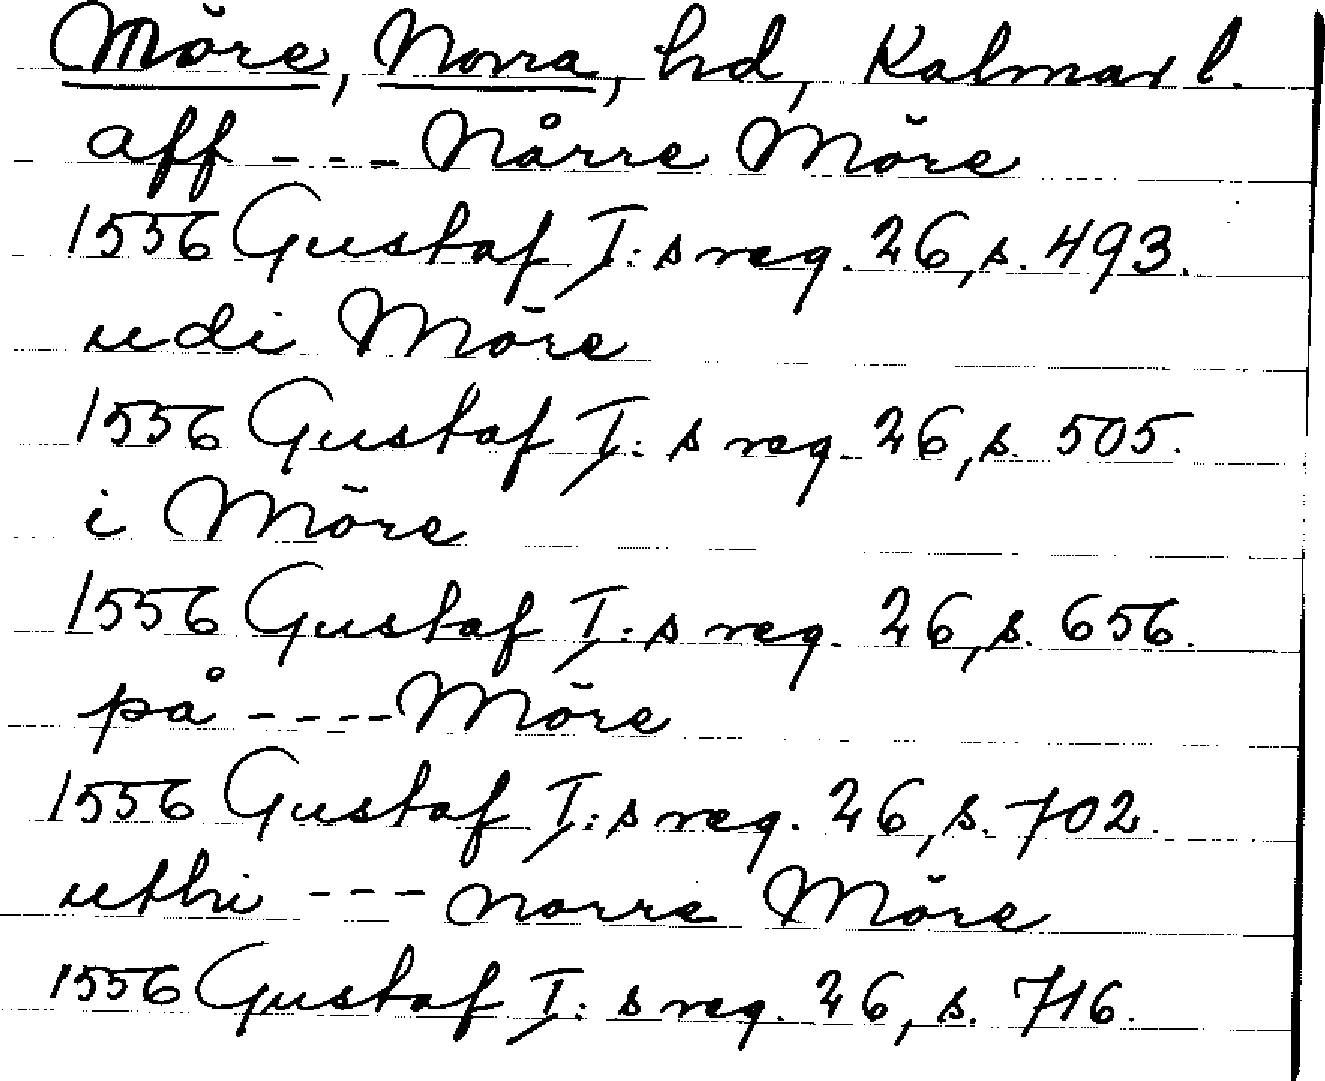 Möre, Norra, hd, Kalmar l.
aff --- Nårre Möre
1556 Gustaf I:s reg. 26, s. 493.
udi Möre
1556 Gustaf I:s reg. 26, s. 505.
i Möre
1556 Gustaf I:s reg. 26, s. 656.
på ---- Möre
1556 Gustaf I:s reg. 26, s. 702.
uthi --- norre Möre
1556 Gustaf I:s reg. 26, s. 716.